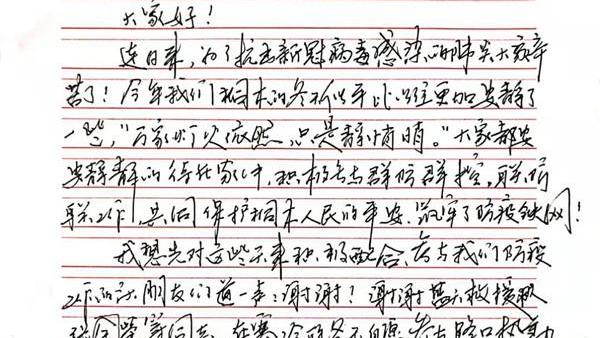 大家好！
连日来，为了抗击新冠病毒感染的肺炎大家辛
苦了！今年我们桐木的冬天似乎比以往更加安静了
一些，"万家灯火依然，只是静悄悄。"大家都安
安静静的待在家中，积极参与群防群控，联防
联控工作，共同保护桐木人民的平安，筑牢了防疫铁网！
我想先对这些天来积极配合、参与我们防疫
工作的朋友们道一声：谢谢！谢谢蓝天救援队
在寒冷的冬